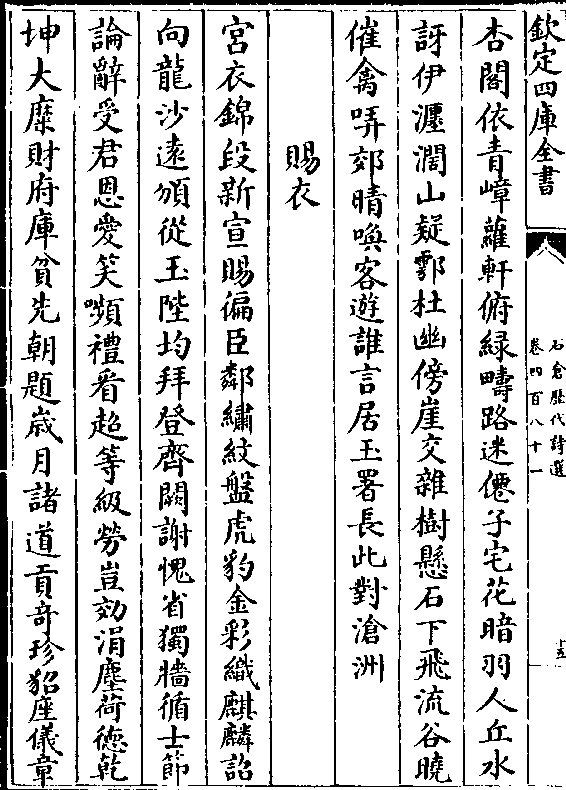 欽定四庫全書
石倉歷代詩選
卷四百八十一
十五
杏閣依青嶂蘿軒俯緑疇路迷僊子宅花暗羽人丘水
訝伊瀍濶山疑鄠杜幽傍崖交雜樹懸石下飛流谷曉
催禽哢郊晴喚客遊誰言居玉署長此對滄洲
賜衣
宮衣錦段新宣賜徧臣鄰繡紋盤虎豹金彩織麒麟詔
向龍沙遠頒從玉陛均拜登齊闕謝愧省獨牆循士節
論辭受君恩愛笑嚬禮看超等級勞豈効涓塵荷徳乾
坤大糜財府庫貧先朝題嵗月諸道貢奇珍貂座儀章